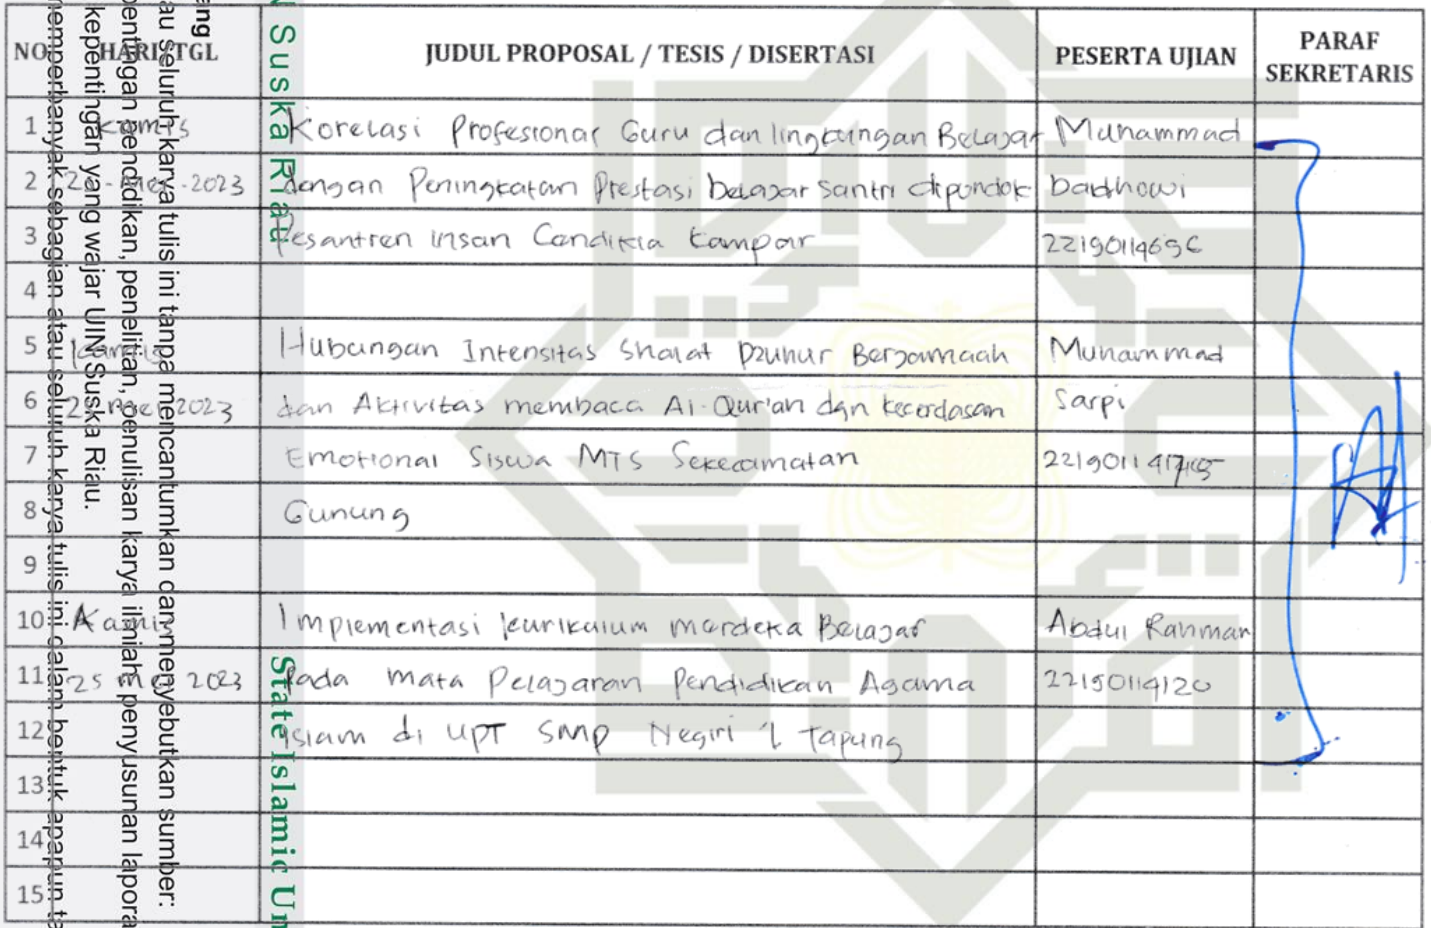 NO HARI/TGL JUDUL PROPOSAL / TESIS / DISERTASI PESERTA UJIAN PARAF SEKRETARIS
1 Kamis Korelasi Profesional Guru dan lingkungan Belajar Muhammad
2 25-Mei-2023 dengan Peningkatan Prestasi belajar santri dipondok badhowi
3 Pesantren insan Cendikia Kampar
4
5 Kamis Hubungan Intensitas Shalat Dzuhur Berjamaah Muhammad
6 25-Mei 2023 dan Aktivitas membaca Al-Qur'an dgn kecerdasan Sarpi
7 Emotional Siswa MTS Sekecamatan
8 Gunung
9
10 Kamis Implementasi kurikulum merdeka Belajar Abdul Rahman
11 25 mei 2023 Pada mata Pelajaran Pendidikan Agama 22190114120
12 islam di UPT SMP Negiri 1 Tapung
13
14
15
ang
au seluruh karya tulis ini tanpa mencantumkan dan menyebutkan sumber:
pentingan pendidikan, penelitian, penulisan karya ilmiah, penyusunan lapora
kepentingan yang wajar UIN Suska Riau.
memperbanyak sebagian atau seluruh karya tulis ini dalam bentuk apapun ta
N Suska Riau
State Islamic Un